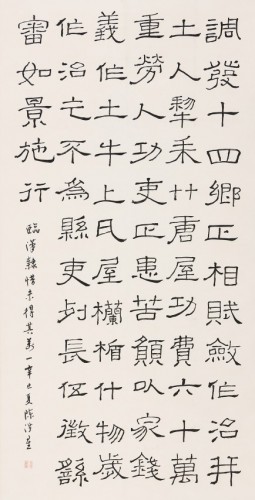 調發十四鄉正相賦斂作治并
土人犁耒屋功費六十萬
重勞人功吏正患苦願以家錢
義作土牛上瓦屋欄楯什物歲
作治乞不為縣吏列長伍徵繇
審如景施行
臨漢隸惜未得其萬一辛巳夏陳